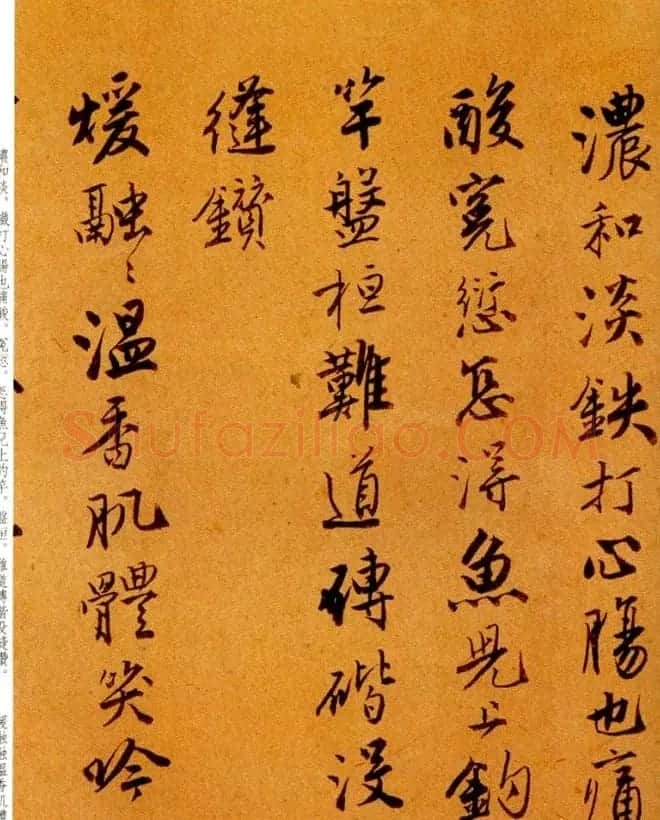 濃和淡鉄打心腸也痛
酸寃愆怎得魚兒上鈎
竿盤桓難道磚堦没
縫鑽
煖融〻温香肌體笑吟
Shufaziliao.COM